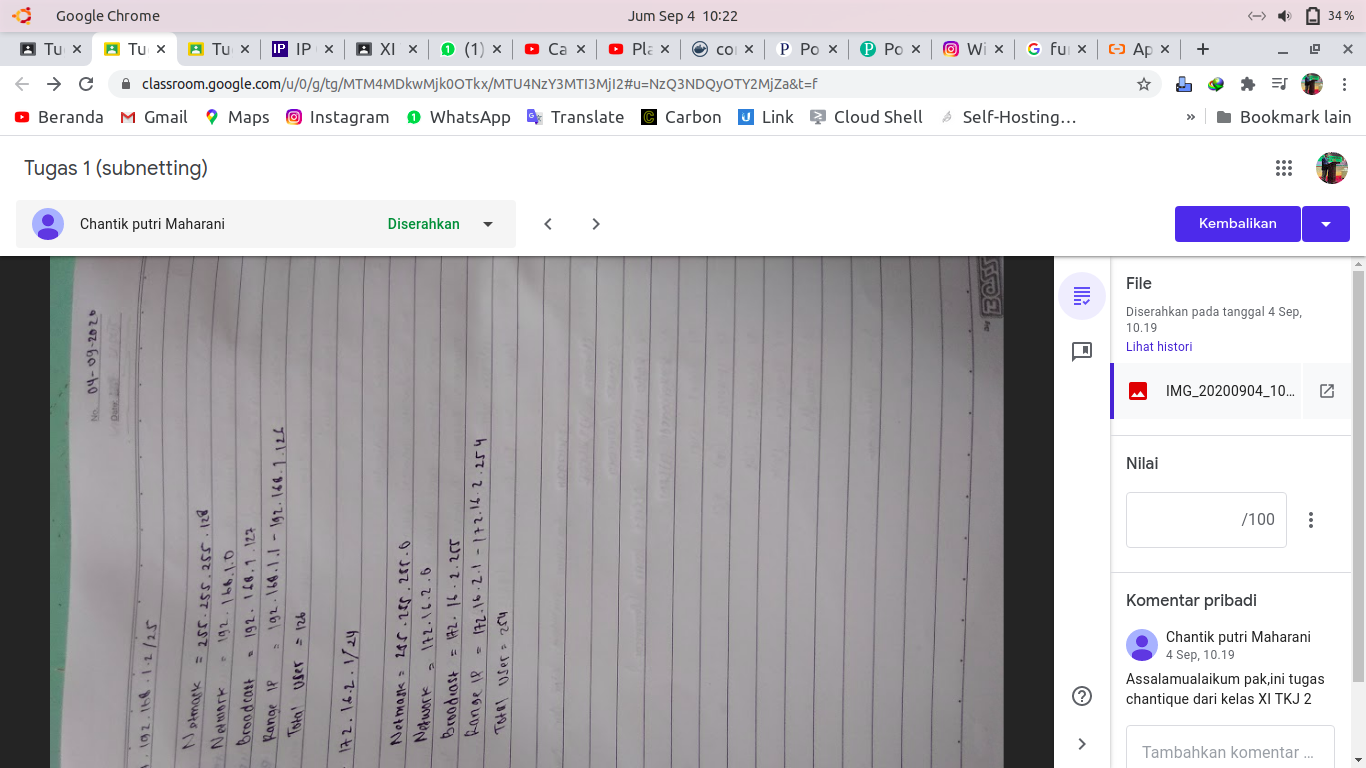 Google Chrome
Jum Sep 4 10:22
34 %
Tu
Tu
Tu
IP
XI
(1)
Ca
Pla
co
Po
Po
Wi
fu
Ap
classroom.google.com/u/0/g/tg/MTM4MDkwMjk0OTkx/MTU4NzY3MTI3MjI2#u=NzQ3NDQyOTY2MjZa&t=f
Beranda
Gmail
Maps
Instagram
WhatsApp
Translate
Carbon
Link
Cloud Shell
Self-Hosting…
»
Bookmark lain
Tugas 1 (subnetting)
Chantik putri Maharani
Diserahkan
Kembalikan
No. 04-09-2020
192.168.1.2/25
Netmark = 255.255.255.128
Network = 192.168.1.0
Broadcast = 192.168.1.127
Range IP = 192.168.1.1 - 192.168.1.126
Total User = 126
172.16.2.1/24
Netmark = 255.255.255.0
Network = 172.16.2.0
Broadcast = 172.16.2.255
Range IP = 172.16.2.1 - 172.16.2.254
Total User = 254
File
Diserahkan pada tanggal 4 Sep,
10.19
Lihat histori
IMG_20200904_10...
Nilai
/100
Komentar pribadi
Chantik putri Maharani
4 Sep, 10.19
Assalamualaikum pak,ini tugas
chantique dari kelas XI TKJ 2
Tambahkan komentar …